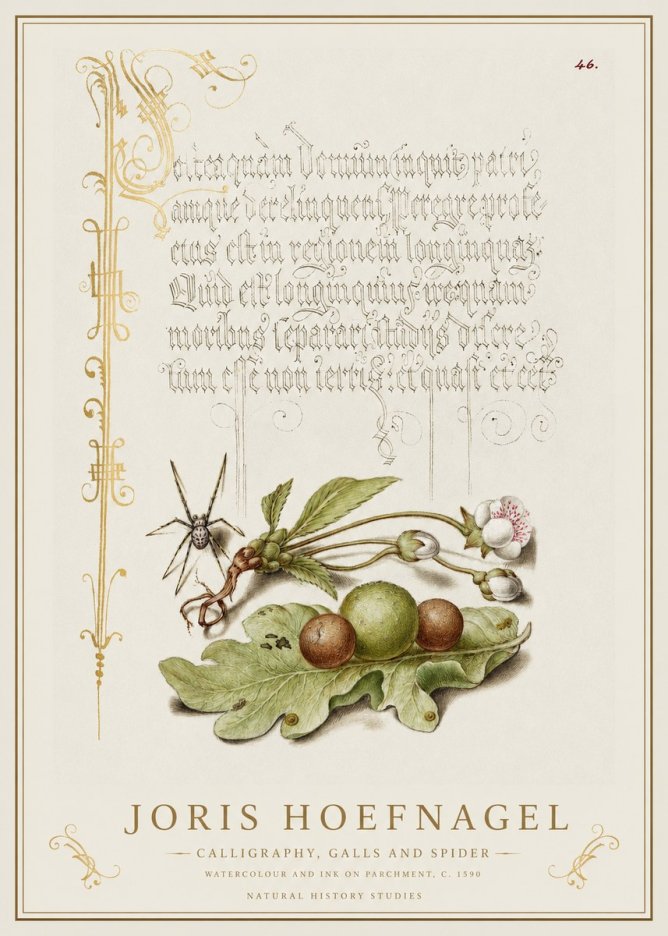 46.
inquit patri
amque derelinquens Peregre profe-
ctus est in regionem
Quid est longinquius
moribus separari Studijs discre
tum esse non terris et quasi
JORIS HOEFNAGEL
CALLIGRAPHY, GALLS AND SPIDER
WATERCOLOUR AND INK ON PARCHMENT, C. 1590
NATURAL HISTORY STUDIES